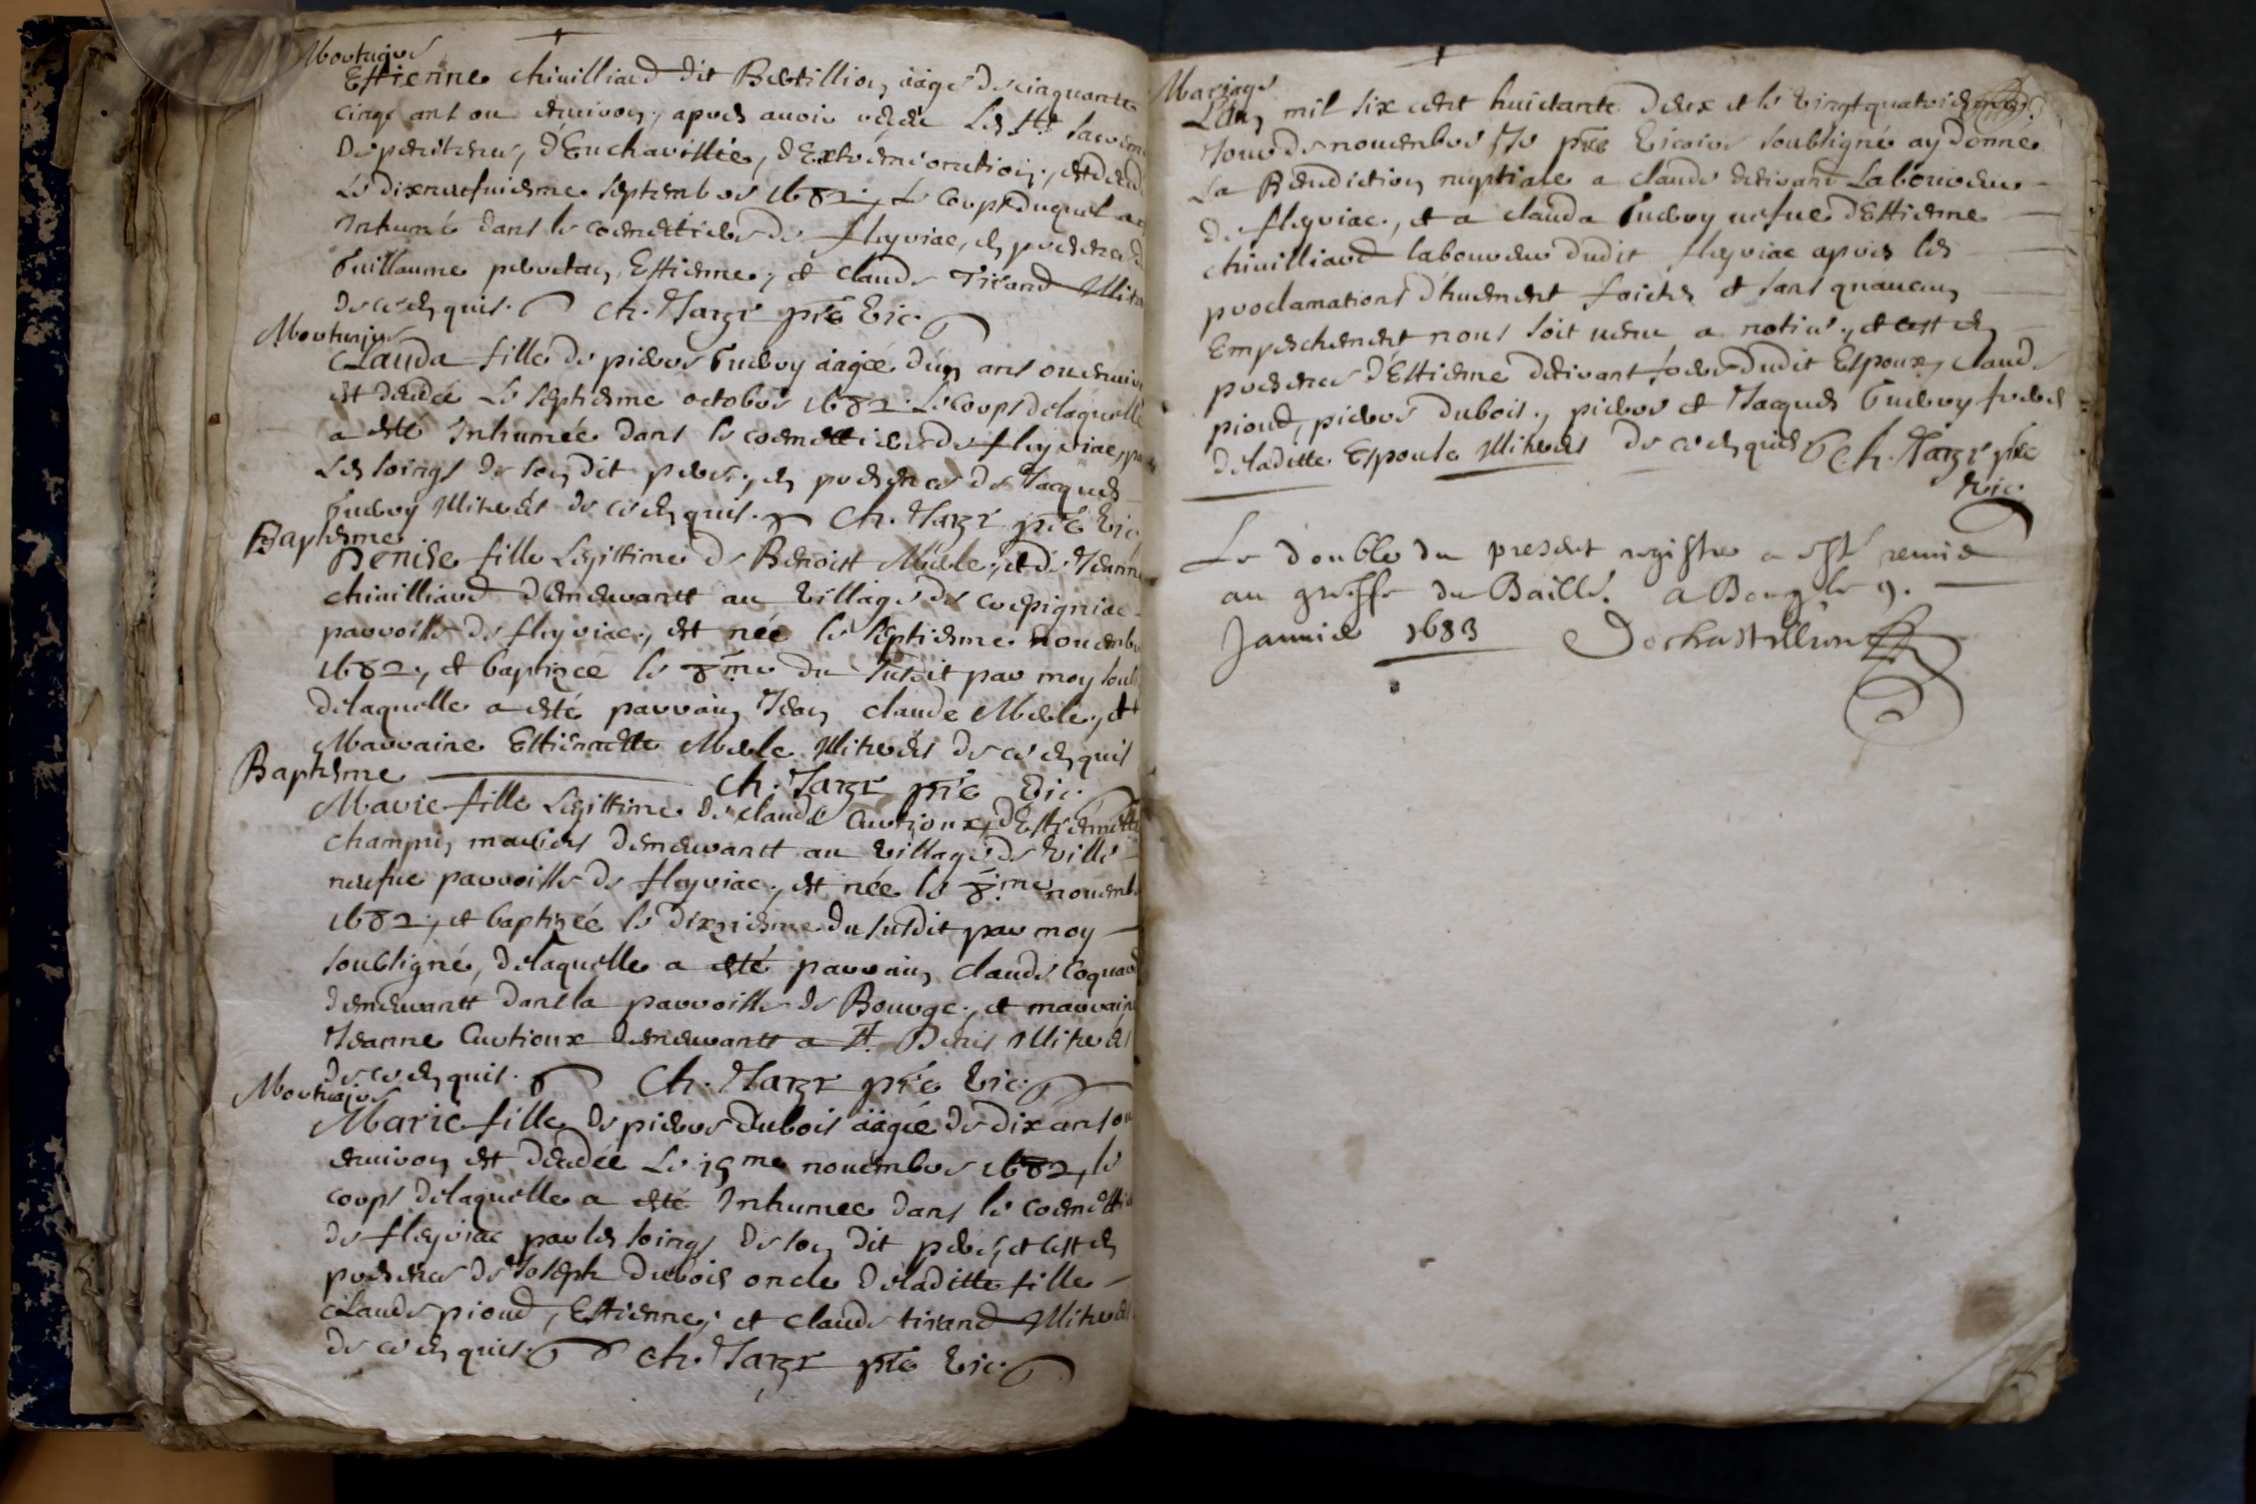 Mortuaire
Estienne chivilliard dit Bertillion, äagé de cinquante
cinq ans ou environ, apres avoir receu les sts sacrem
de penitence, d'Eucharistie, d'Extremeonction, est deced
Le dixneufuiesme septembre 1682, Le Corps duquel a
Inhumé dans le coemettiere de fleyriac, en presence d
Guillaume perreten, Estienne, et claude Tirand
de ce enquis. Ch. Jarze pre Vic.
Mortuaire
Clauda fille de pierre Guerry äagée d'un ans ou environ
est decedée Le septiesme octobre 1682. Le corps delaquelle
a esté Inhumée dans le coemettiere de fleyriac, pa
Les soings de son dit pere, en presence de Jacques
Guerry Illiteres de ce enquis. Ch. Jarze pre Vic
Baptesme
Denise fille Legittime de Benoist Merle, et de Jeanne
chivilliard demeurantt au village de corpigniac
parroisse de fleyriac, est née le septiesme novemb
1682, et baptizée le 8.me du susdit par moy soub
delaquelle a esté parrain Jean claude Merle, et
Marraine Estiennette Merle Illiteres de ce enquis
Ch. Jarze pre Vic.
Baptesme
Marie fille Legittime de claude Curtioux, d'Estiennette
champin mariés demeurantt au village de Ville-
neufue parroisse de fleyriac, est née le 8.me novemb
1682, et baptizée le dixiesme du susdit par moy
soubsigné, delaquelle a esté parrain claude Coquard
demeurantt dans la parroisse de Bourge, et marraine
Jeanne Curtioux demeurantt a St. Denis Illiteres
de ce enquis. Ch. Jarze pre Vic.
Mortuaire
Marie fille de pierre Dubois äagée de dix ans ou
environ est decedée Le 15me novembre 1682, le
corps delaquelle a esté Inhumee dans le coemetti
de fleyriac par les soings de son dit pere, et c'est en
presence de Joseph Dubois oncle deladitte fille
claude pioud, Estienne, et claude tirand Illiteres
de ce enquis. Ch. Jarze pre Vic.
Mariage
L'An mil six cent huictante deux et le vingt quatriesme
Jour de novembre Je pre Vicaire soubsigné ay donné
La Benediction nuptiale a claude Laboureur
de fleyriac, et a clauda Guerry vefue d'Estienne
chivilliard laboureur dudit fleyriac apres les
proclamations d'huement faictes et sans qu'aucun
Empeschement nous soit venu a notice, et c'est en
presence d'Estienne frere dudit Espoux, claude
pioud, pierre Dubois, pierre et Jacques Guerry freres
deladitte Espouse Illiteres de ce enquis Ch. Jarze pre
Vic.
Le double du present registre a esté remis
au greffe du Bailli. a Bourg le 9.
Janvier 1683 Dechastillion